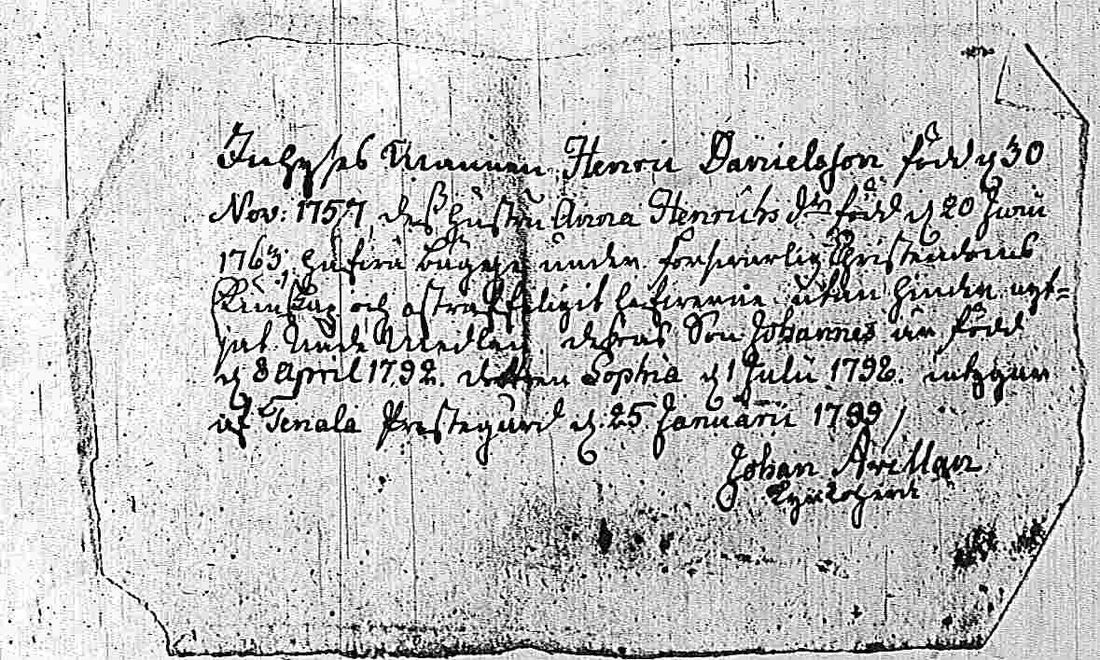 Inhyses Mannen Henric Danielsson född d 30
Nov: 1757, dess hustru Anna Henrichs dr född d 20 Junii
1763, hafva bägge under försvarlig Christendoms
Kunskap och ostraffeligit lefverne utan hinder nyt-
jat Nåde Medlen. deras Son Johannes är född
d 8 April 1792. dottren Sophia d 1 Julii 1798. intygar
af Tenala Prestegård d. 25 Januarii 1799
Johan
Kyrkoherde